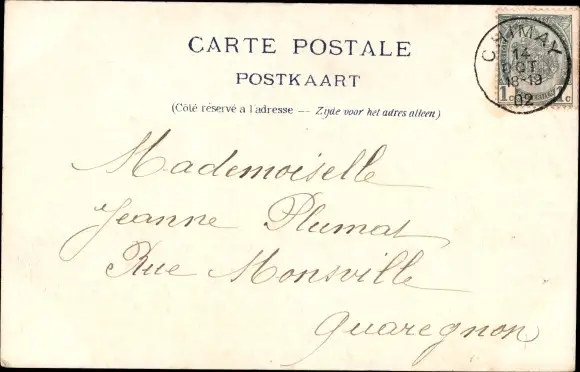 CARTE POSTALE
POSTKAART
(Côté réservé a l'adresse — Zijde voor het adres alleen)
CHIMAY
14
OCT
18-19
02
1c 1c
Mademoiselle
Jeanne Plumat
Rue Monsville
Quaregnon